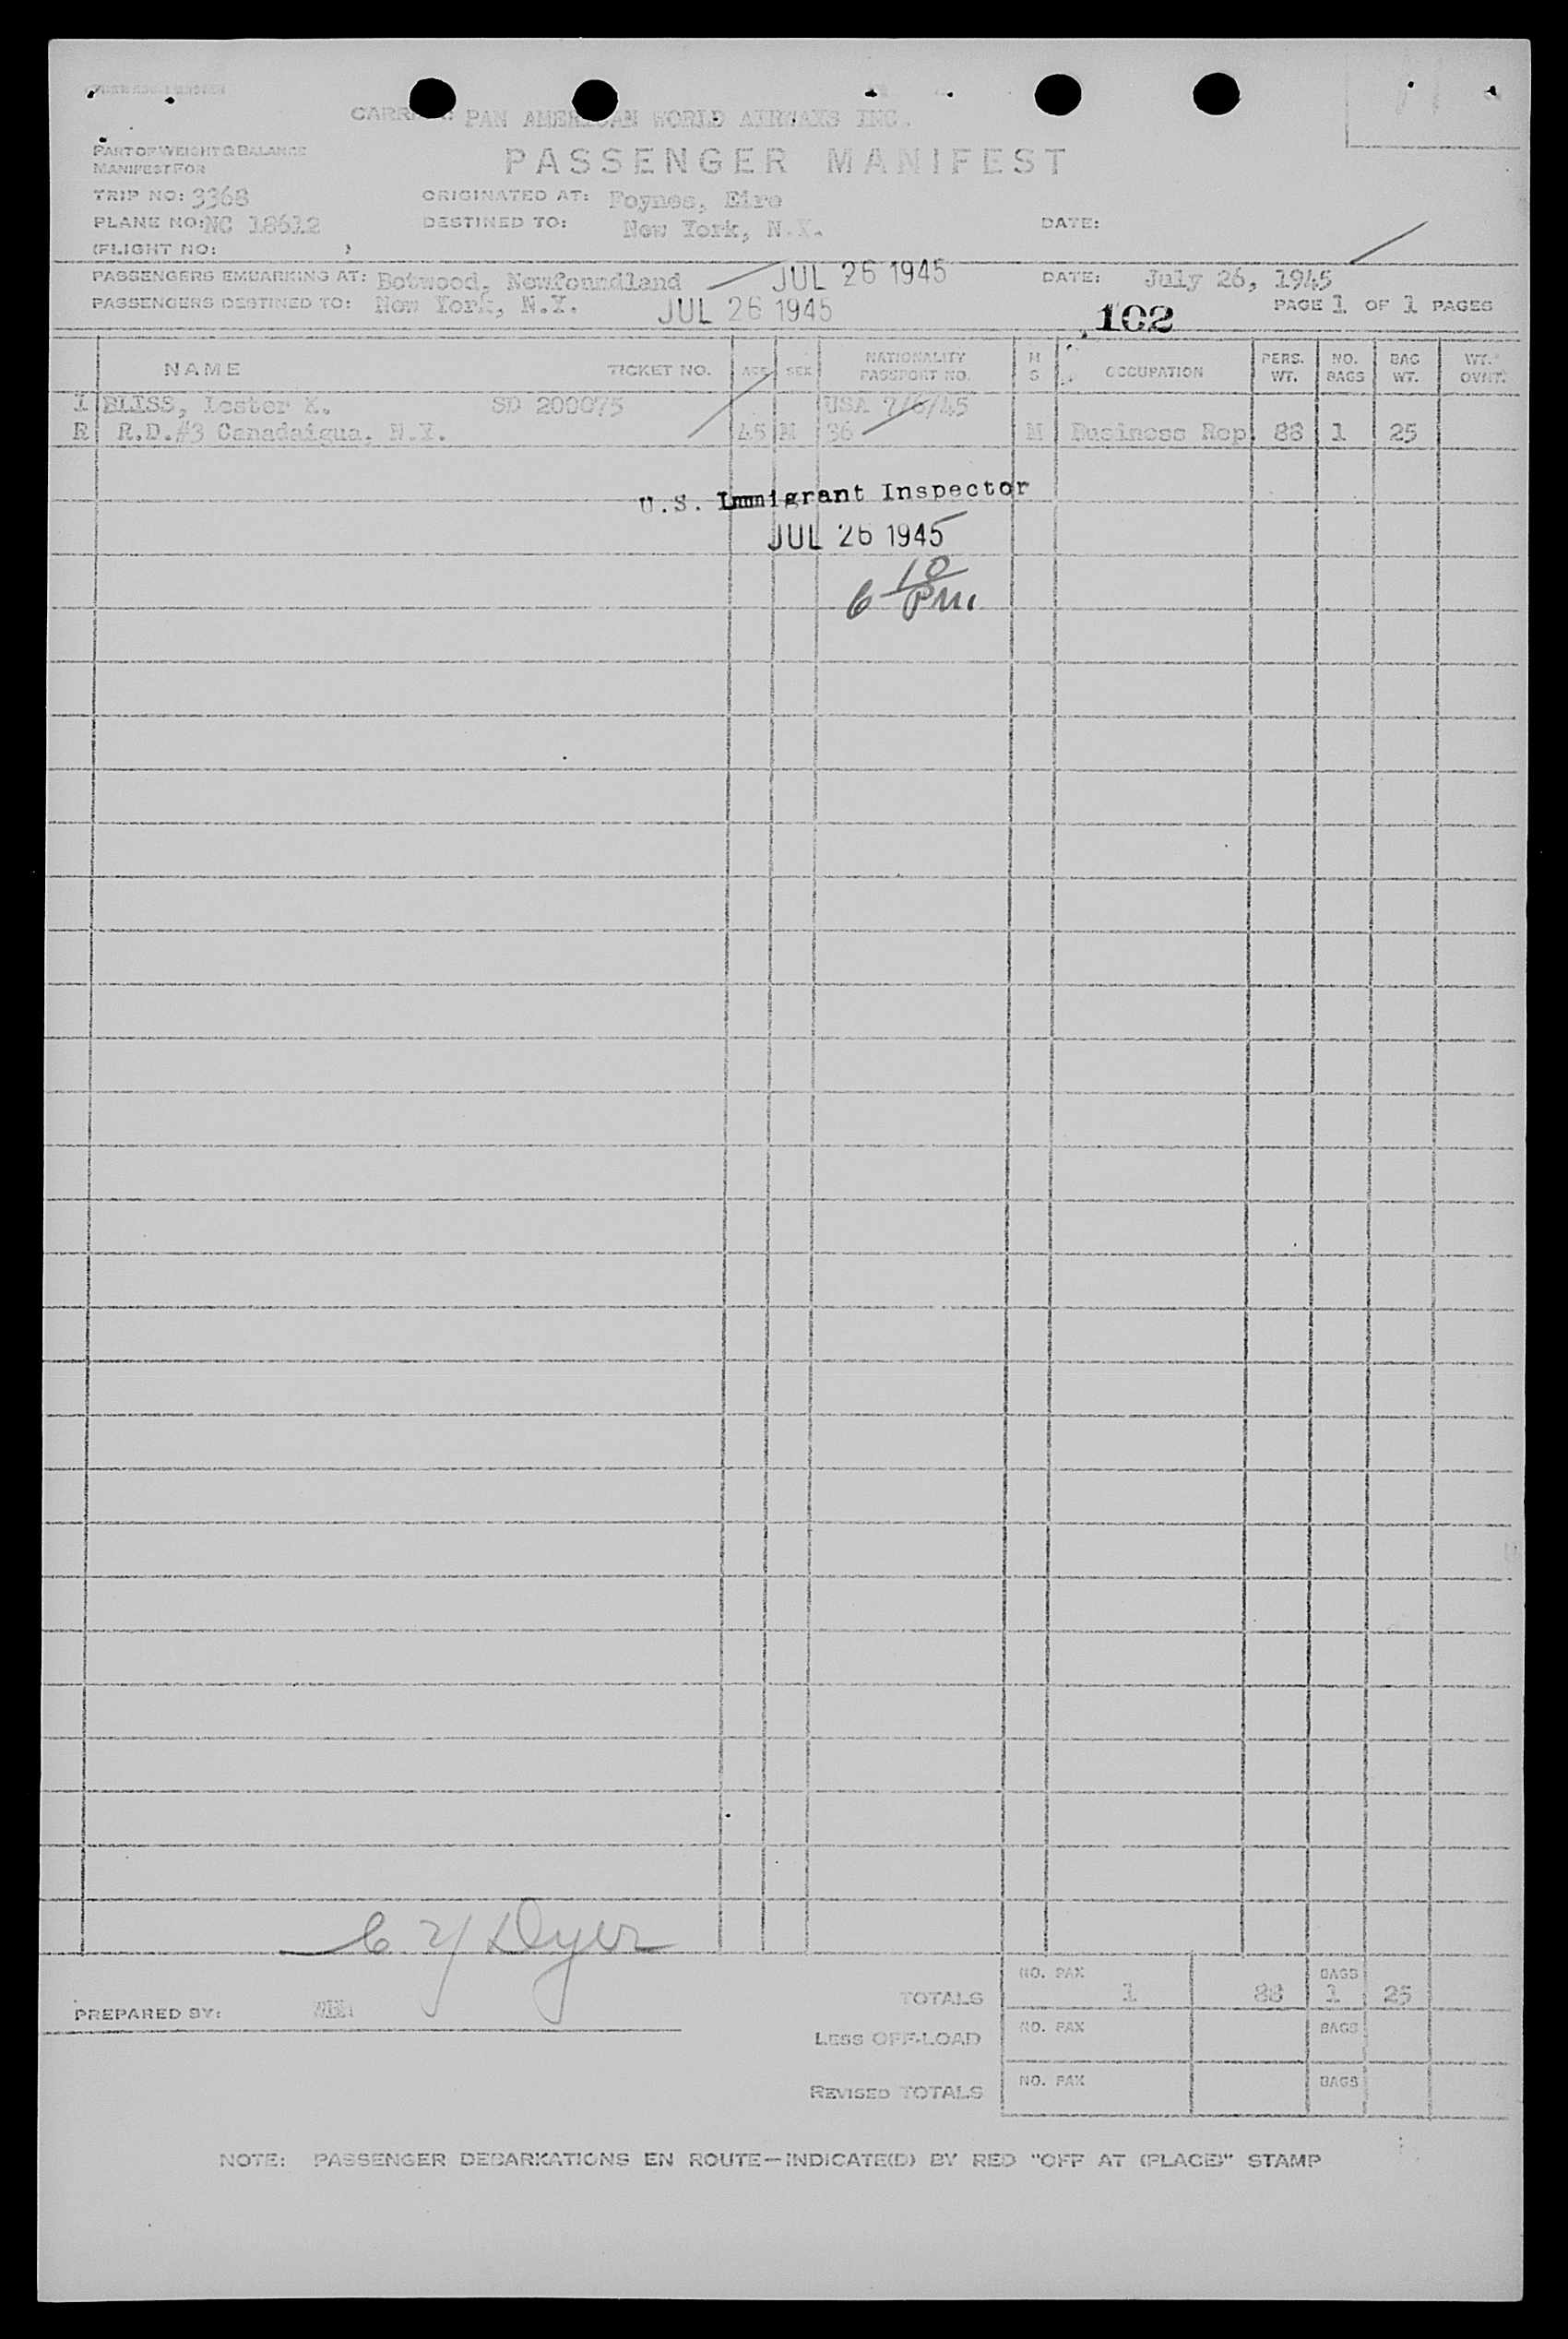 CARRIER: PAN AMERICAN WORLD AIRWAYS INC.
PART OF WEIGHT & BALANCE
MANIFEST FOR
PASSENGER MANIFEST
TRIP NO: 3368 ORIGINATED AT: Foynes, Eire
PLANE NO: NC 18612 DESTINED TO: New York, N.Y. DATE:
(FLIGHT NO: )
PASSENGERS EMBARKING AT: Botwood, Newfoundland JUL 26 1945 DATE: July 26, 1945
PASSENGERS DESTINED TO: New York, N.Y. JUL 26 1945 102 PAGE 1 OF 1 PAGES
NAME TICKET NO. AGE SEX NATIONALITY PASSPORT NO. M S OCCUPATION PERS. WT. NO. BAGS BAG WT. WT. OVNT.
1 BLISS, Lester K. SD 200075 USA 7/6/45
R R.D.#3 Canadaigua, N.Y. 45 M 36 M Business Rep. 88 1 25
U.S. Immigrant Inspector
JUL 26 1945
6 10 PM.
Dyer
NO. PAX BAGS
TOTALS 1 88 1 25
PREPARED BY:
LESS OFF-LOAD NO. PAX BAGS
REVISED TOTALS NO. PAX BAGS
NOTE: PASSENGER DEBARKATIONS EN ROUTE—INDICATE(D) BY RED "OFF AT (PLACE)" STAMP